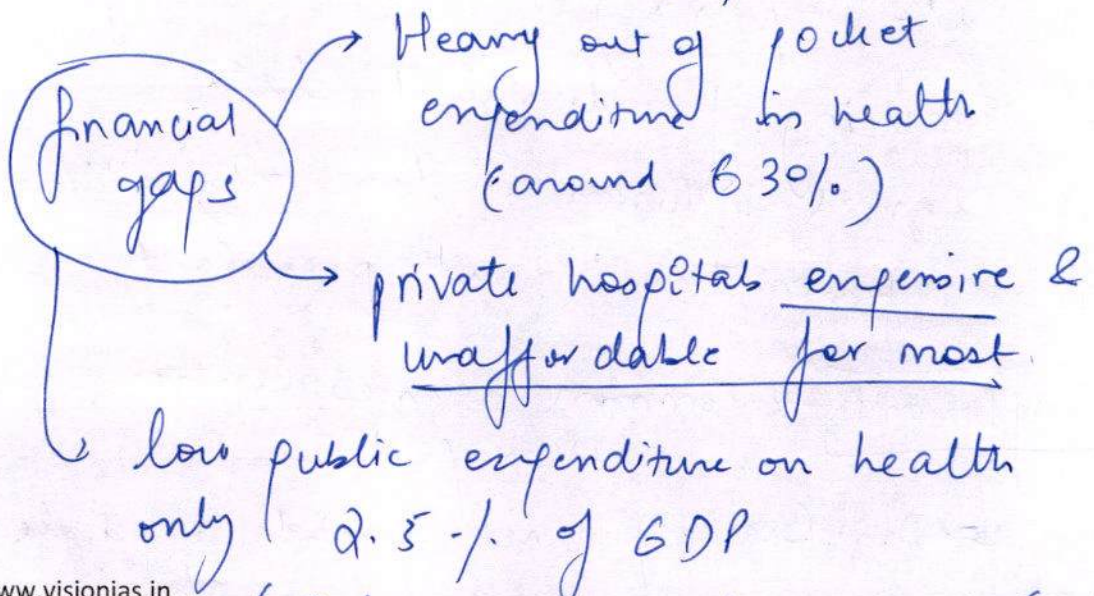 financial
gaps
Heavy out of pocket
expenditure in health
(around 63%)
private hospitals expensive &
unaffordable for most
low public expenditure on health
only 2.5 % of GDP
www.visionias.in